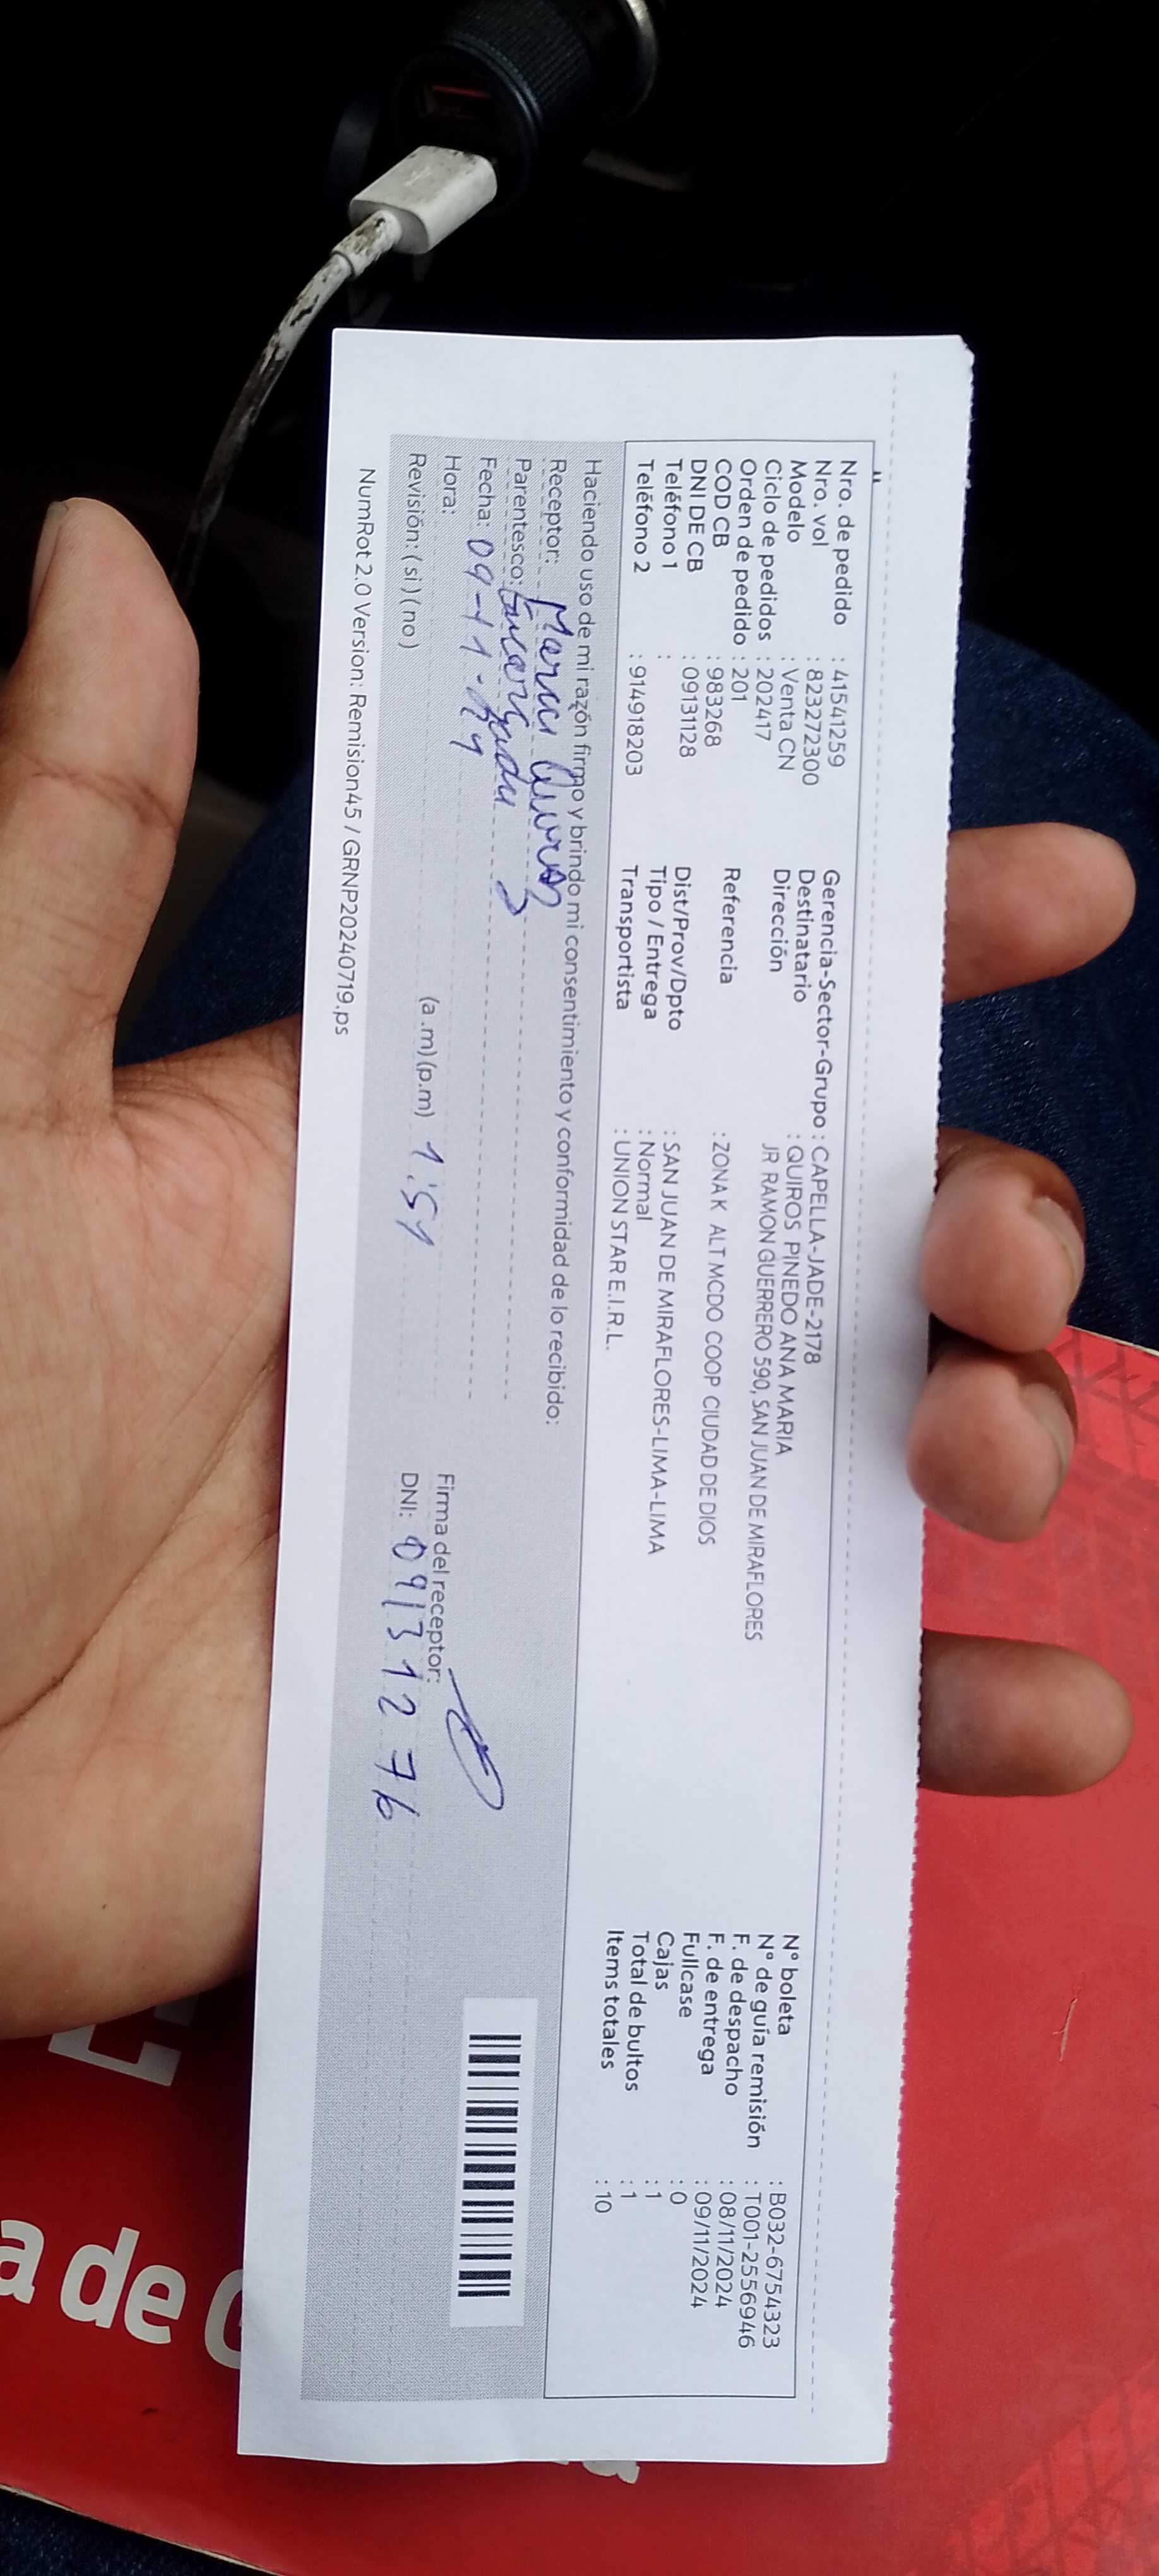 Nro. de pedido : 41541259
Nro. vol : 823272300
Modelo : Venta CN
Ciclo de pedidos : 202417
Orden de pedido : 201
COD CB : 983268
DNI DE CB : 09131128
Teléfono 1 :
Teléfono 2 : 914918203
Gerencia-Sector-Grupo : CAPELLA-JADE-2178
Destinatario : QUIROS PINEDO ANA MARIA
Dirección JR RAMON GUERRERO 590, SAN JUAN DE MIRAFLORES
Referencia : ZONA K ALT MCDO COOP CIUDAD DE DIOS
Dist/Prov/Dpto : SAN JUAN DE MIRAFLORES-LIMA-LIMA
Tipo / Entrega : Normal
Transportista : UNION STAR E.I.R.L.
N° boleta : B032-6754323
N° de guía remisión : T001-2556946
F. de despacho : 08/11/2024
F. de entrega : 09/11/2024
Fullcase : 0
Cajas : 1
Total de bultos : 1
Items totales : 10
Haciendo uso de mi razón firmo y brindo mi consentimiento y conformidad de lo recibido:
Receptor:
Parentesco:
Fecha: 09-11-
Hora: (a.m)(p.m) 1:51
Revisión: (si)(no)
Firma del receptor:
DNI: 09131276
NumRot 2.0 Version: Remision45 / GRNP20240719.ps
a de